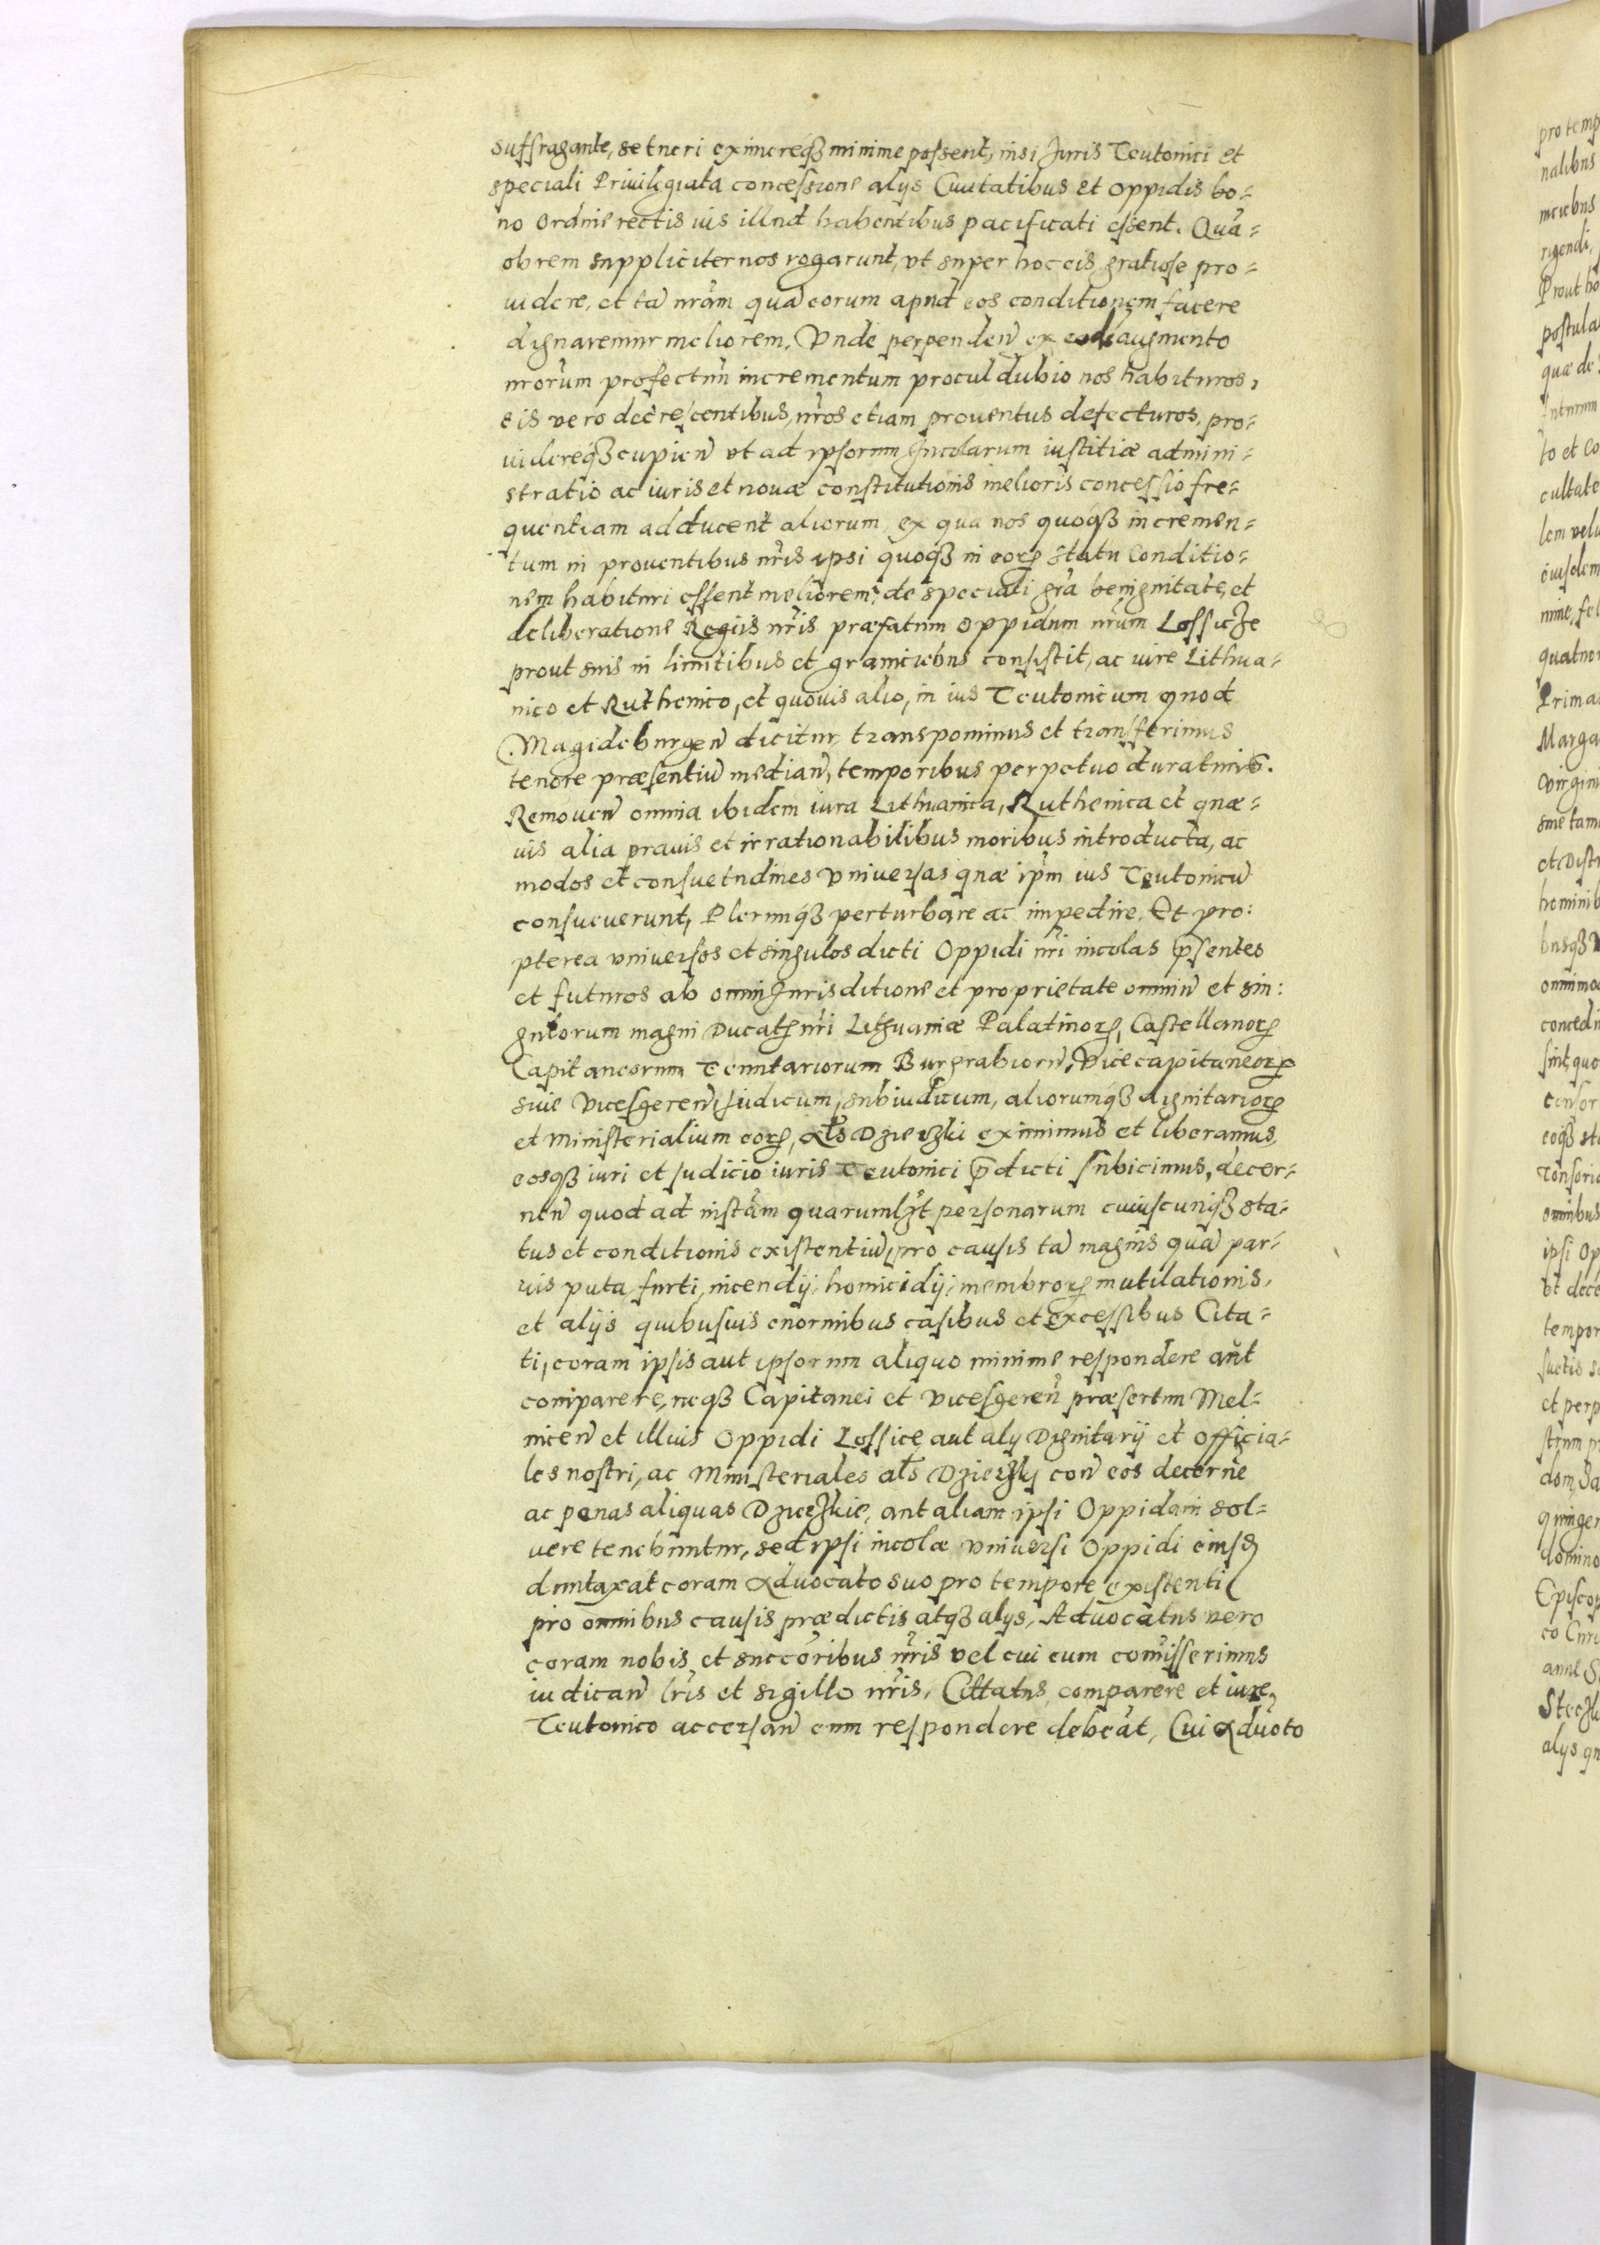 suffragante, se tueri eximereq3 minime possent, nisi Juris Teutonici et
speciali Priuilegiata concessione alijs Ciuitatibus et Oppidis bo-
no Ordine rectis ius illud habentibus pacificati essent. Quā-
obrem suppliciter nos rogarunt, vt super hoc eis gratiose pro-
uidere, et tā nrām quā eorum apud eos conditionem facere
dignaremur meliorem. Vnde perpendeñ ex augmento
nrorum profectuū incrementum procul dubio nos habituros,
eis vero decrescentibus, nros etiam prouentus defecturos, pro-
uidereq3 cupieñ vt ad ipsorum Incolarum iustitiæ admini-
stratio ac iuris et nouæ constitutionis melioris concessio fre-
quentiam adducent aliorum, ex qua nos quoq3 incremen-
tum in prouentibus nris ipsi quoq3 in eoꝝ statu Conditio-
nem habituri essent meliorem, de speciali gra benignitate, et
deliberatione Regijs nris præfatum oppidum nrum Lossicze
prout suis in limitibus et graniciebus consistit, ac iure Lithua-
nico et Ruthenico, et quouis alio, in ius Teutonicum quod
Magideburgeñ dicitur, transponimus et transferimus
tenore præsentiū mediañ, temporibus perpetuo duraturis.
Remoueñ omnia ibidem iura Lithuanica, Ruthenica et quæ-
uis alia prauis et irrationabilibus moribus introducta, ac
modos et consuetudines Vniuersas quæ ipm ius Teutonicū
consueuerunt, Plerumq3 perturbare ac impedire. Et pro:
pterea vniuersos et singulos dicti Oppidi nri incolas p̄sentes
et futuros ab omni Jurisditione et proprietate omniū et sin:
gulorum magni Ducatꝰ nri Lithuaniæ Palatinoꝝ, Castellanoꝝ
Capitaneorum Tenutariorum Burgrabiorū, Vicecapitaneoꝝ
siue vicesgereñ, Judicum, subiudicum, aliorumq3 dignitarioꝝ
et Ministerialium eoꝝ, als Dzieczki eximimus et liberamus,
eosq3 iuri et Judicio iuris Teutonici p̄dicti subicimus, decer-
neñ quod ad instām quarumlzt personarum cuiuscunq3 sta-
tus et conditionis existentiū, pro causis tā magnis quā par-
uis puta furti, incendij, homicidij, membroꝝ mutilationis,
et alijs quibusuis enormibus casibus et excessibus Cita-
ti, coram ipsis aut ipsorum aliquo minime respondere aut
comparere, neq3 Capitanei et vicesgereñ præsertim Mel-
niceñ et illius Oppidi Lossice, aut alij Dignitarij et officia-
les nostri, ac Ministeriales als Dzieczki con̄ eos decerne
ac penas aliquas Dzieczkie, aut aliam ipsi Oppidani sol-
uere tenebuntur, sed ipsi incolæ Vniuersi Oppidi eiusꝺ
duntaxat coram Aduocato suo pro tempore existenti
pro omnibus causis prædictis atq3 alijs, Aduocatus vero
coram nobis et succōribus nris vel cui eum comisserimus
iudicañ lris et sigillo nris, Cittatus comparere et iure
Teutonico accersañ eum respondere debeat, Cui Aduōto